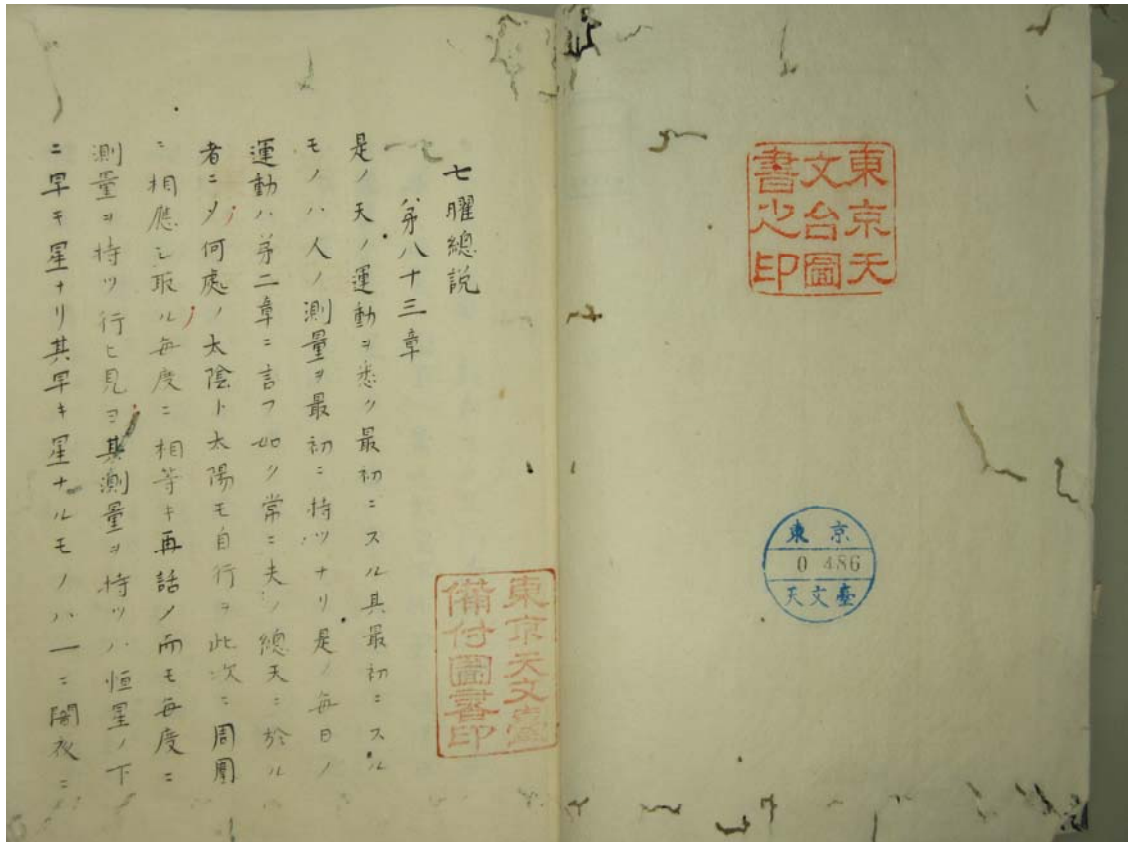 東京天
文台圖
書之印
東京
0 486
天文臺
東京天文臺
備付圖書印
七曜總説
第八十三章
是ノ天ノ運動ヲ悉ク最初ニスル其最初ニスル
モノハ人ノ測量ヲ最初ニ持ツナリ是ノ毎日ノ
運動ハ第二章ニ言フ如ク常ニ夫ノ總天ニ於ル
者ニメ何處ノ太陰ト太陽モ自行ヲ此次ニ周圍
ニ相應シ取ル毎度ニ相等キ再話ノ而モ毎度ニ
測量ヲ持ツ行ヒ見ヨ其測量ヲ持ツハ恒星ノ下
ニ早キ星ナリ其早キ星ナルモノハ一ニ闇夜ニ